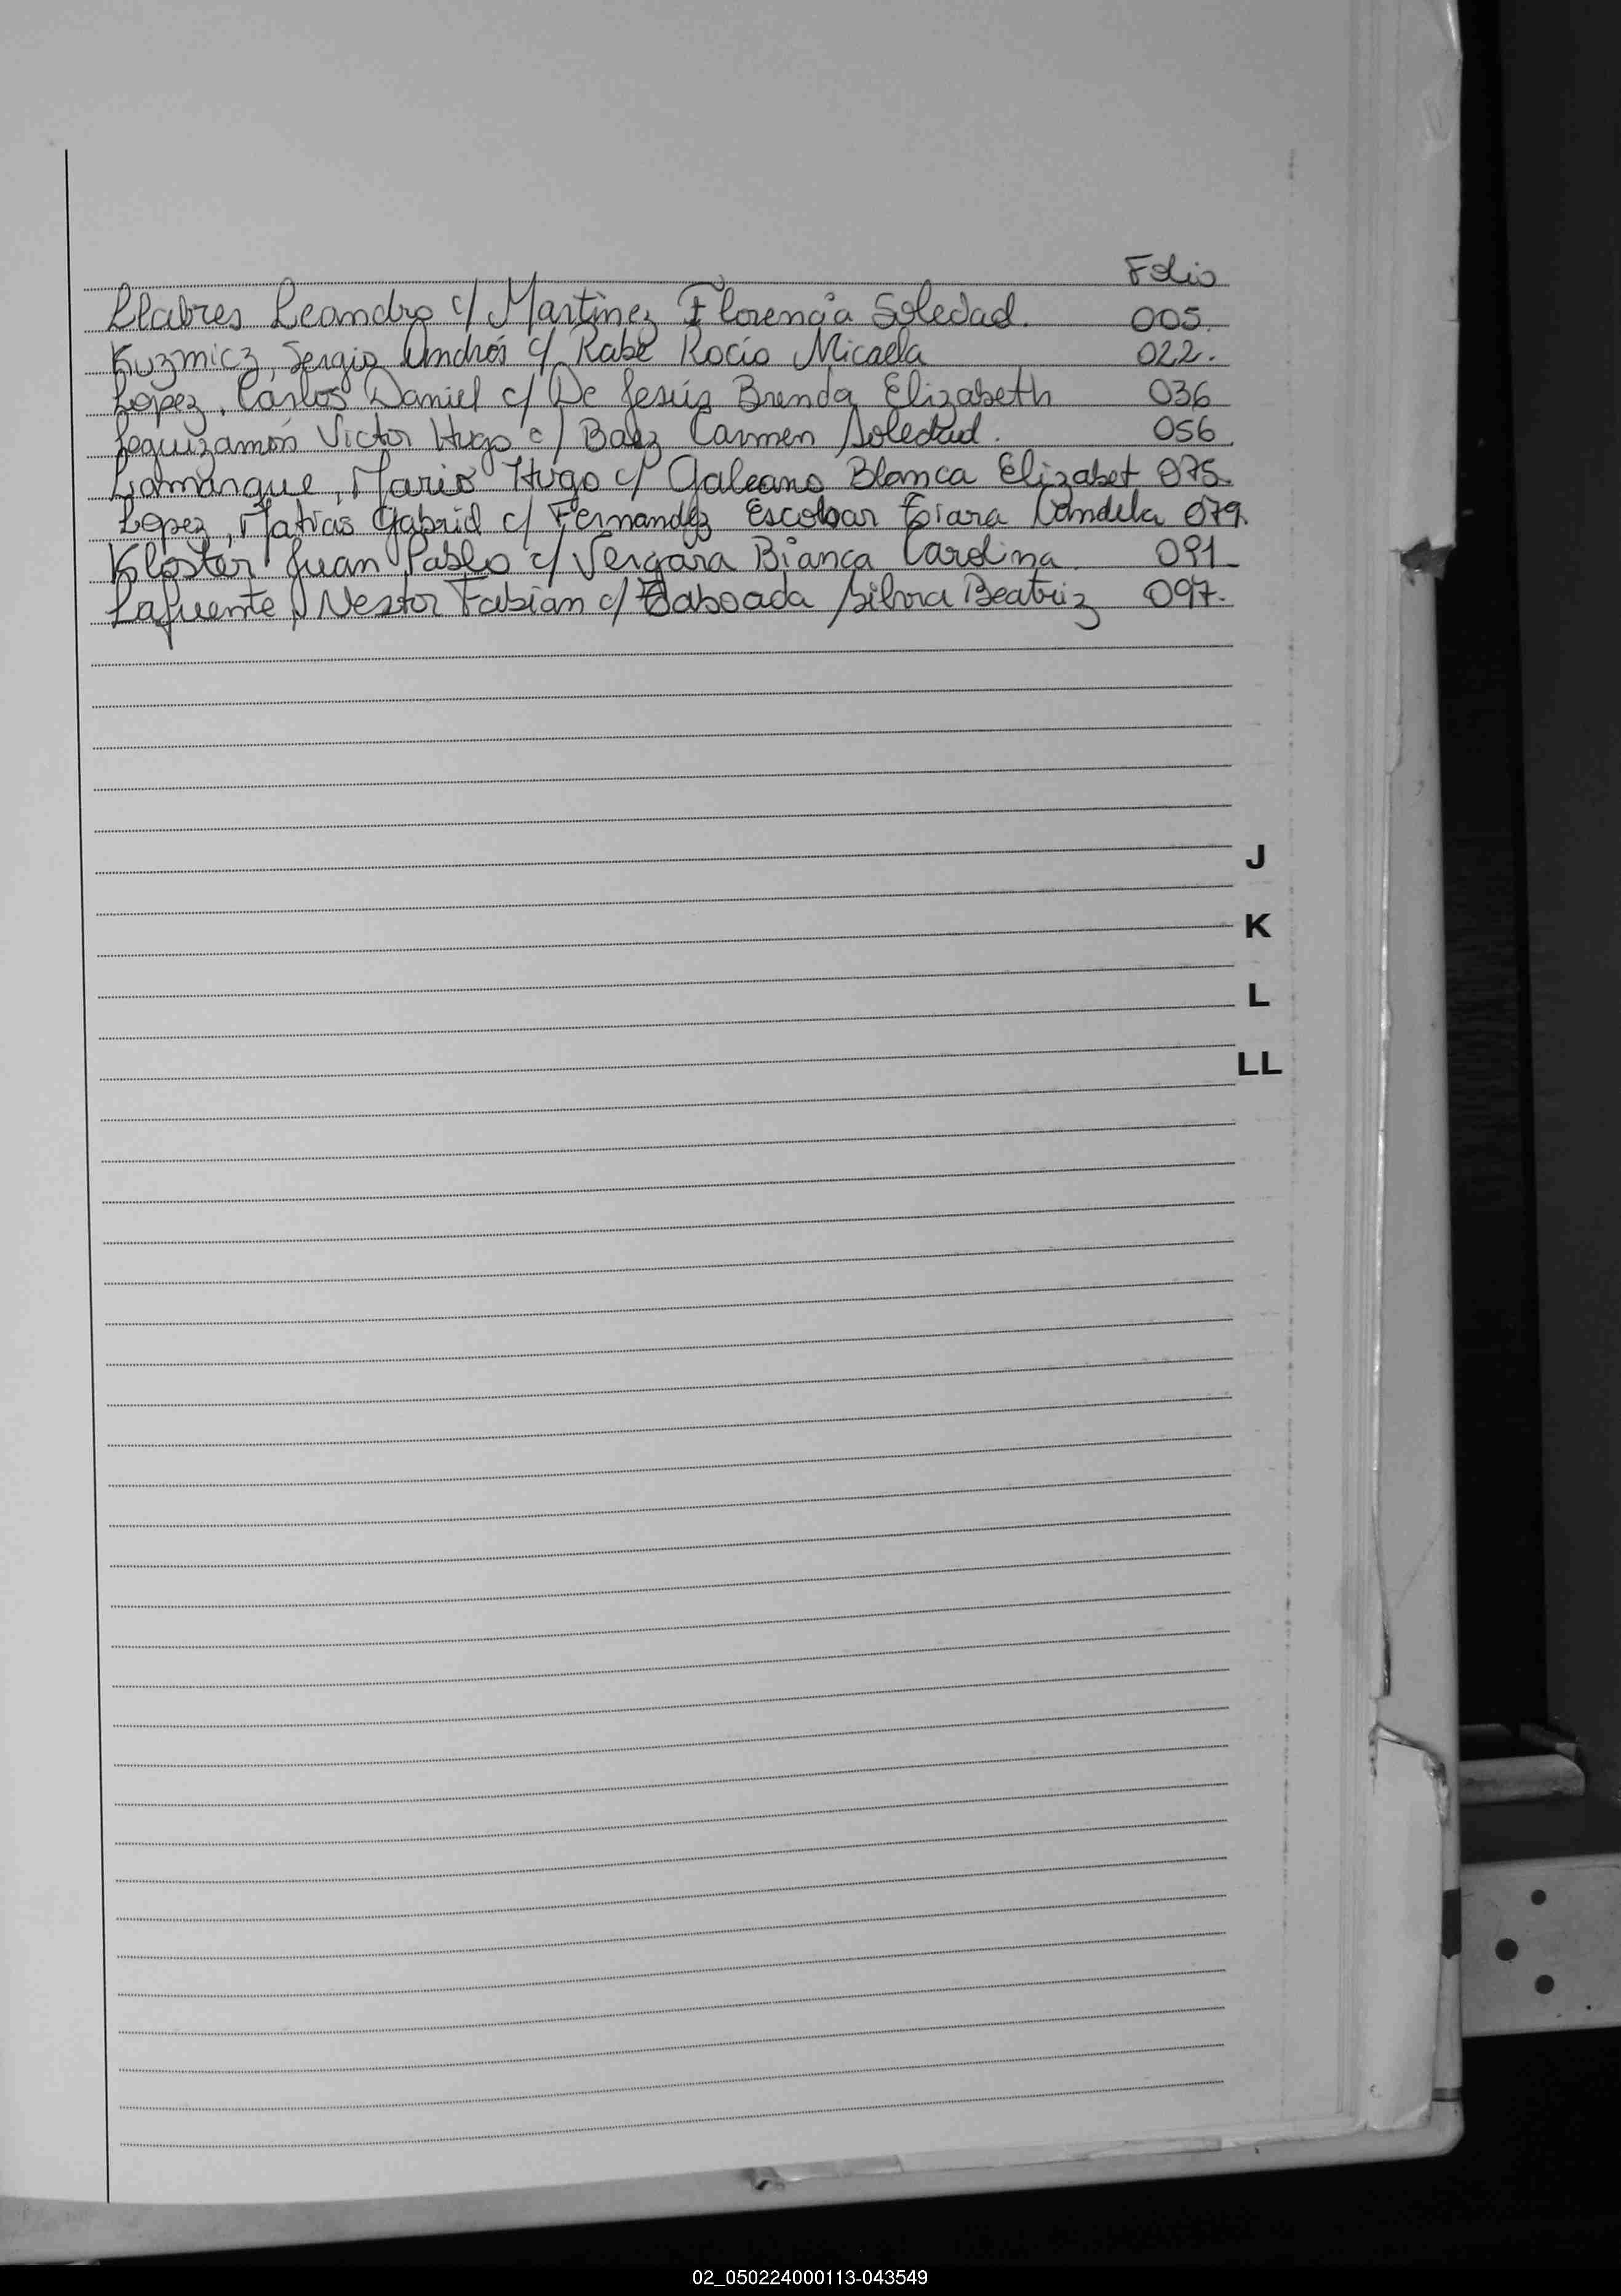 Folio
Llabres Leandro c/ Martinez Florencia Soledad. 005.
Kuzmicz, Sergio Andrés c/ Rabe Rocío Micaela 022.
Lopez, Carlos Daniel c/ De Jesús Brenda Elizabeth 036
Leguizamón Victor Hugo c/ Baez Carmen Soledad. 056
Lamarque, Mario Hugo c/ Galeano Blanca Elizabet 075.
Lopez, Matias Gabriel c/ Fernandez Escobar Candela 079.
Kloster Juan Pablo c/ Vergara Bianca Carolina. 091
Lafuente, Nestor Fabian c/ Taboada Silvia Beatriz 097.
J
K
L
LL
02_050224000113-043549